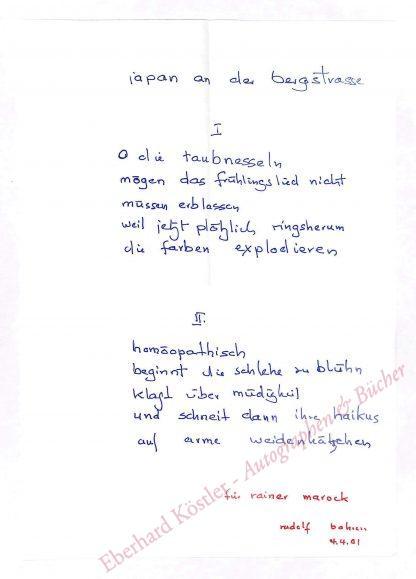 japan an der bergstrasse
I
O die taubnesseln
mögen das frühlingslied nicht
müssen erblassen
weil jetzt plötzlich ringsherum
die farben explodieren
II.
homöopathisch
beginnt die schlehe zu blühn
klagt über müdigkeit
und schneit dann ihre haikus
auf arme weidenkätzchen
für rainer marock
rudolf
4.4.01
Eberhard Köstler - Autographen & Bücher